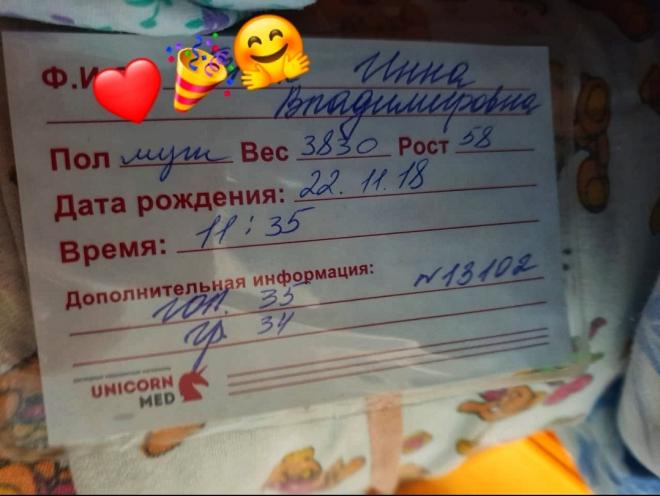 Ф.И. Инна
Владимировна
Пол муж Вес 3830 Рост 58
Дата рождения: 22.11.18
Время: 11:35
Дополнительная информация: N13102
гол. 35
гр. 34
UNICORN
MED